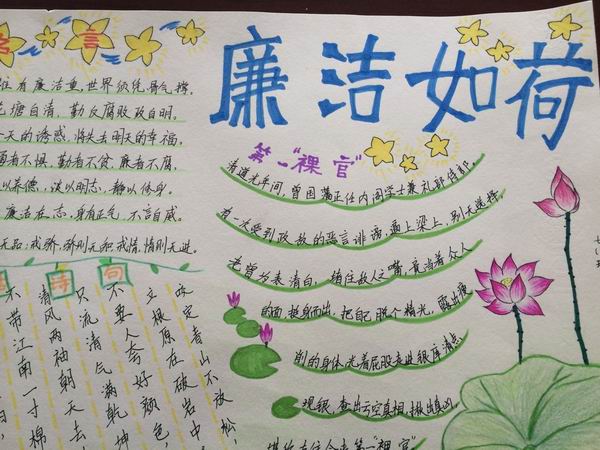 名言
往有廉洁重,世界须凭骨气撑。
池塘自清,勤反腐败政自明。
天的诱惑,将失去明天的幸福。
者不惧,勤者不贫,廉者不腐。
以养德,淡以明志,静以修身。
廉洁在志,身有正气,不言自威。
无品,戒骄,骄则无知,戒情,情则无进。
诗句
咬定青山不放松,
立根原在破岩中
不要人夸好颜色,
只流清气满乾坤
清风两袖朝天去
不带江南一寸棉
廉洁如荷
第一“裸官”
清道光年间,曾国藩正任内阁学士兼礼部侍郎
有一次受到政敌的恶言诽谤,逼上梁上,别无选择。
老曾为表清白,堵住敌人之嘴,竟当着众人
的面挺身而出,把自己脱个精光,露出瘦
削的身体,光着屁股走进银库清点
现银,查出亏空真相,揪出真凶。
第一“裸官”